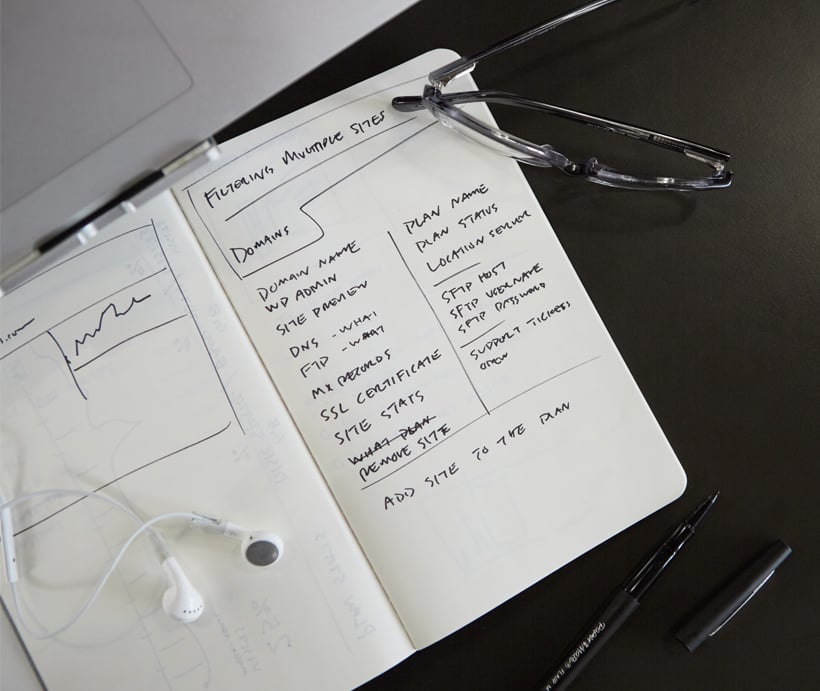 FILTERING MULTIPLE SITES
DOMAINS
DOMAIN NAME
WP ADMIN
SITE PREVIEW
DNS - WHAT
FTP - WHAT
MX RECORDS
SSL CERTIFICATE
SITE STATS
WHAT PLAN
REMOVE SITE
PLAN NAME
PLAN STATUS
LOCATION SERVER
SFTP HOST
SFTP USERNAME
SFTP PASSWORD
SUPPORT TICKETS
OPEN
ADD SITE TO THE PLAN
Paper Mate FLAIR